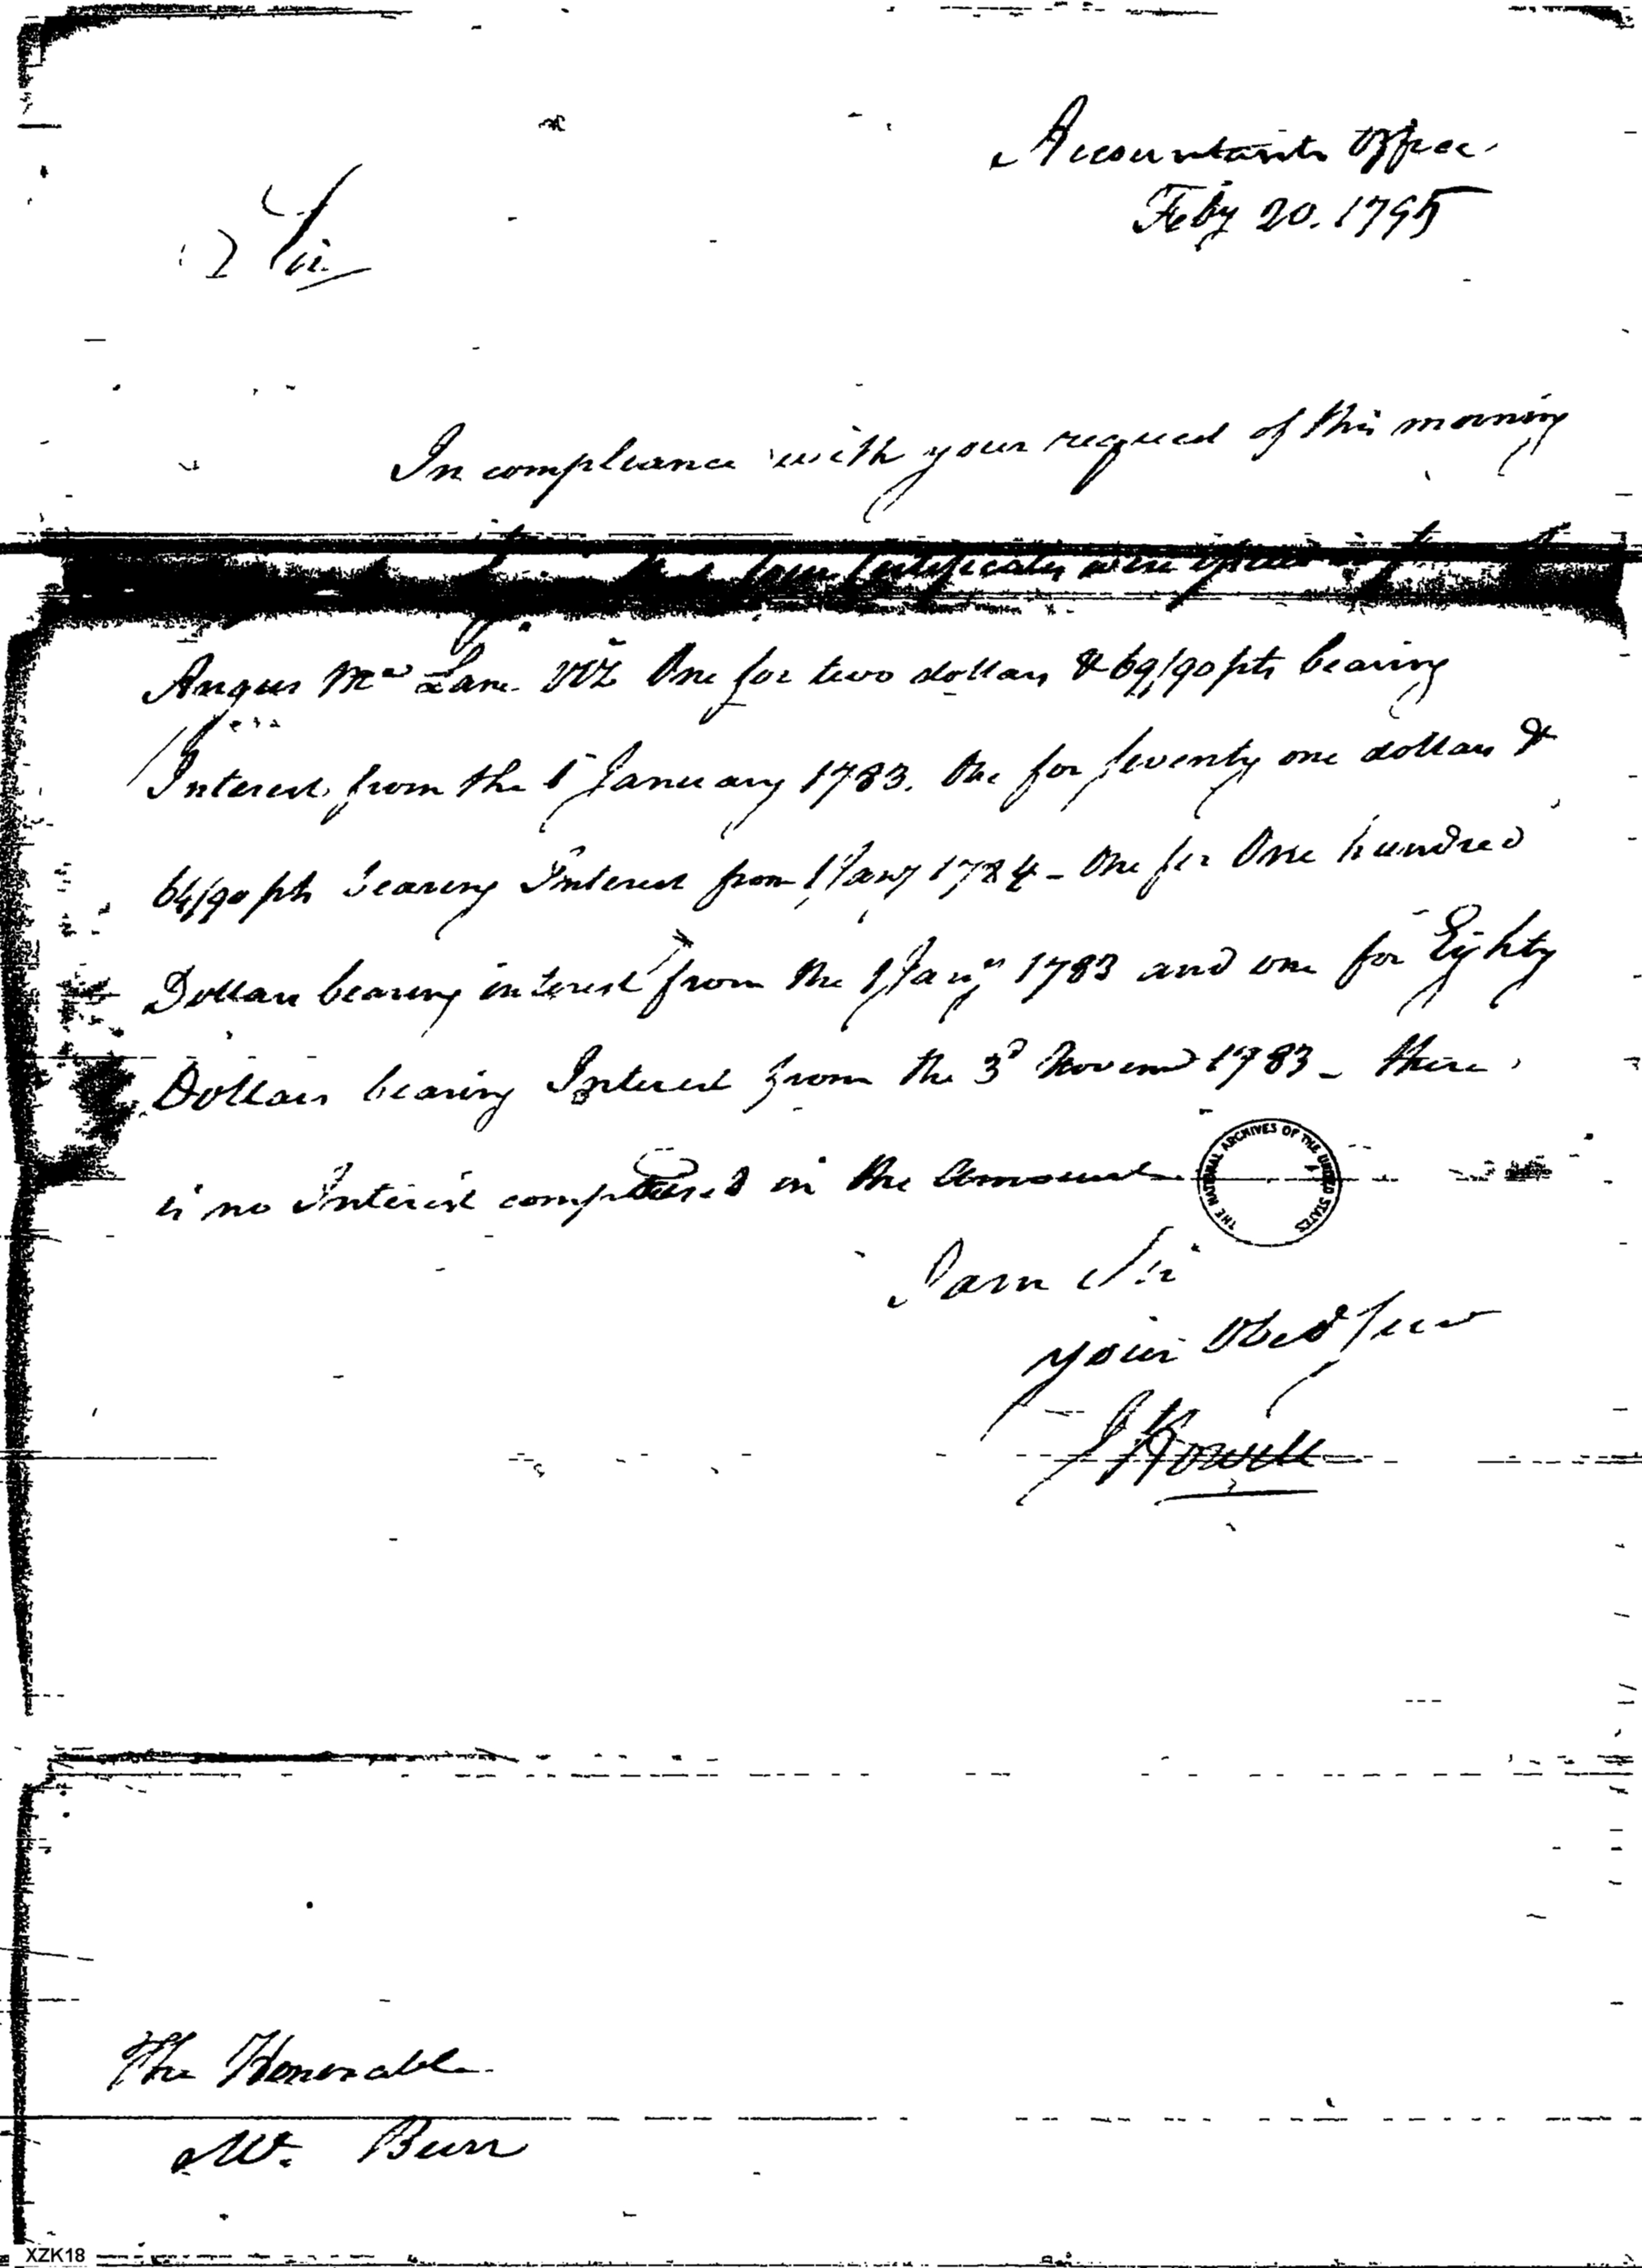 Accountants Office
Feby 20. 1795
Sir
In compliance with your request of this morning
four Certificates were
Angus Mc Lane. Viz One for two dollars & 69/90 pts bearing
Interest from the 1 January 1783. One for seventy one dollars &
64/90 pts bearing Interest from 1 Jany 1784 - One for One hundred
Dollars bearing interest from the 1 Jany 1783 and one for Eighty
Dollars bearing Interest from the 3d Novemr 1783 - there
is no Interest comprised in the Amount
THE NATIONAL ARCHIVES OF THE UNITED STATES
I am Sir
your Obed Serv
J Howell
The Honorable
Mr. Burr
XZK18